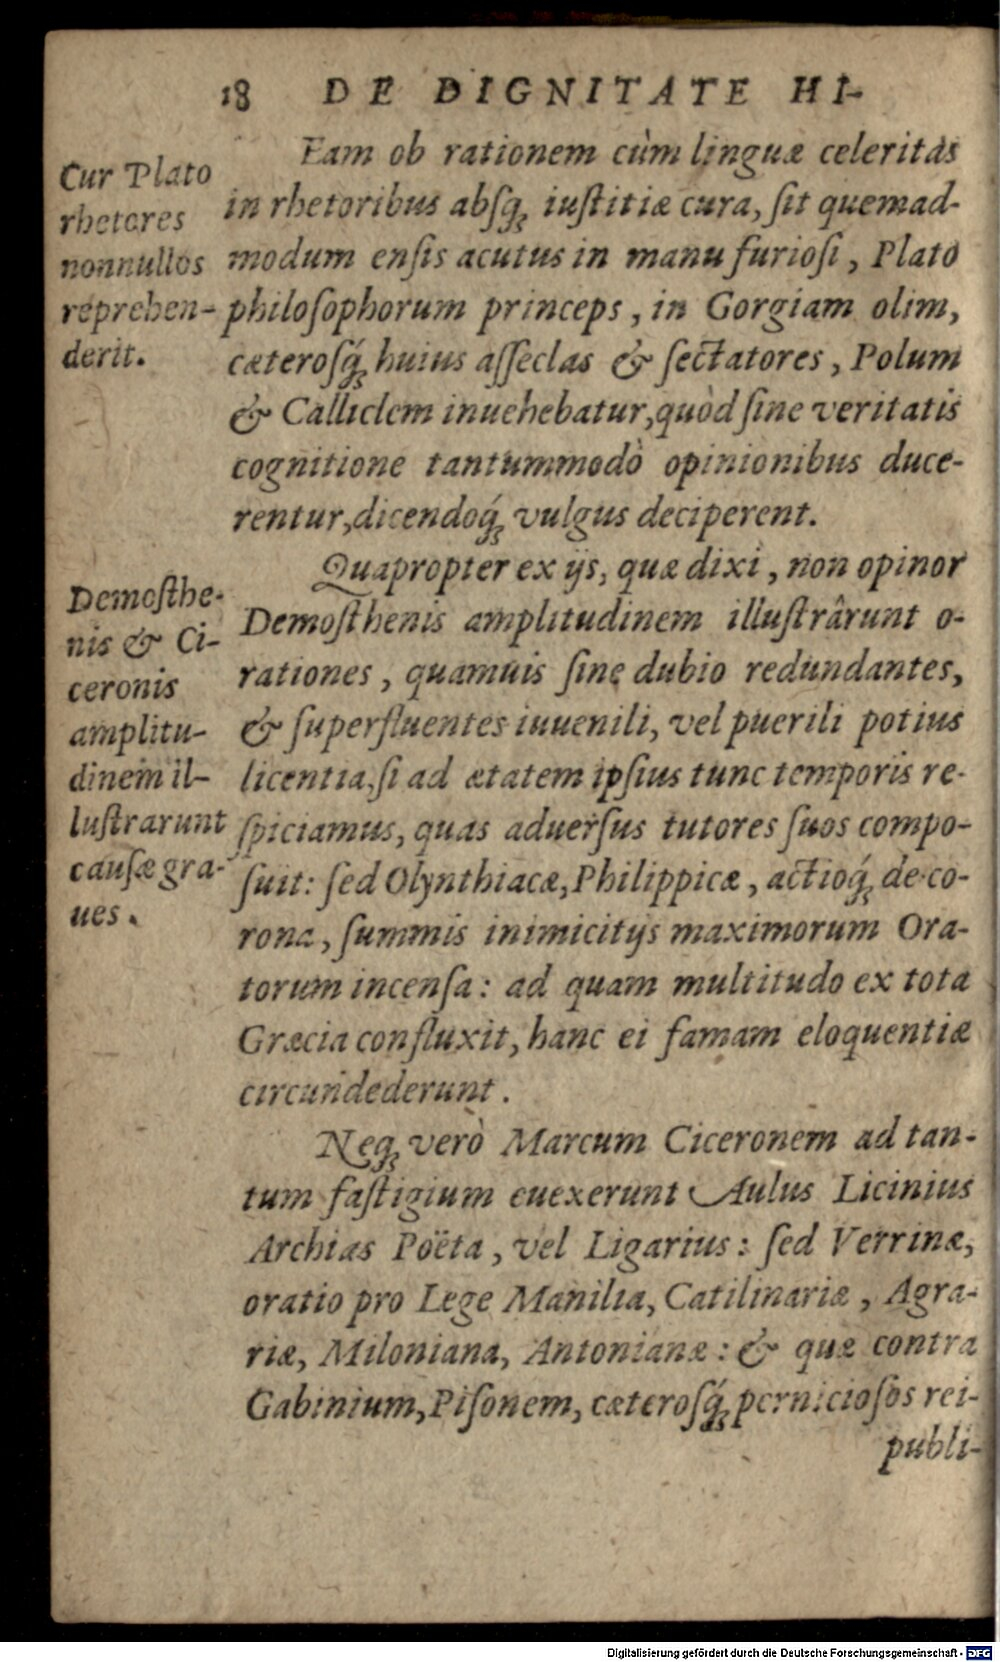 18 DE DIGNITATE HI-
Eam ob rationem cùm linguæ celeritas
in rhetoribus absq; iustitiæ cura, sit quemad-
modum ensis acutus in manu furiosi, Plato
philosophorum princeps, in Gorgiam olim,
cæterosq́; huius asseclas & sectatores, Polum
& Calliclem inuehebatur, quòd sine veritatis
cognitione tantummodò opinionibus duce-
rentur, dicendoq́; vulgus deciperent.
Cur Plato
rhetores
nonnullos
reprehen-
derit.
Quapropter ex ijs, quæ dixi, non opinor
Demosthenis amplitudinem illustrârunt o-
rationes, quamuis sine dubio redundantes,
& superfluentes iuuenili, vel puerili potius
licentia, si ad ætatem ipsius tunc temporis re-
spiciamus, quas aduersus tutores suos compo-
suit: sed Olynthiacæ, Philippicæ, actioq́; de co-
rona, summis inimicitijs maximorum Ora-
torum incensa: ad quam multitudo ex tota
Græcia confluxit, hanc ei famam eloquentiæ
circundederunt.
Demosthe-
nis & Ci-
ceronis
amplitu-
dinem il-
lustrarunt
causæ gra-
ues.
Neq; verò Marcum Ciceronem ad tan-
tum fastigium euexerunt Aulus Licinius
Archias Poëta, vel Ligarius: sed Verrinæ,
oratio pro Lege Manilia, Catilinariæ, Agra-
riæ, Miloniana, Antonianæ: & quæ contra
Gabinium, Pisonem, cæterosq́; perniciosos rei-
publi-
Digitalisierung gefördert durch die Deutsche Forschungsgemeinschaft - DFG